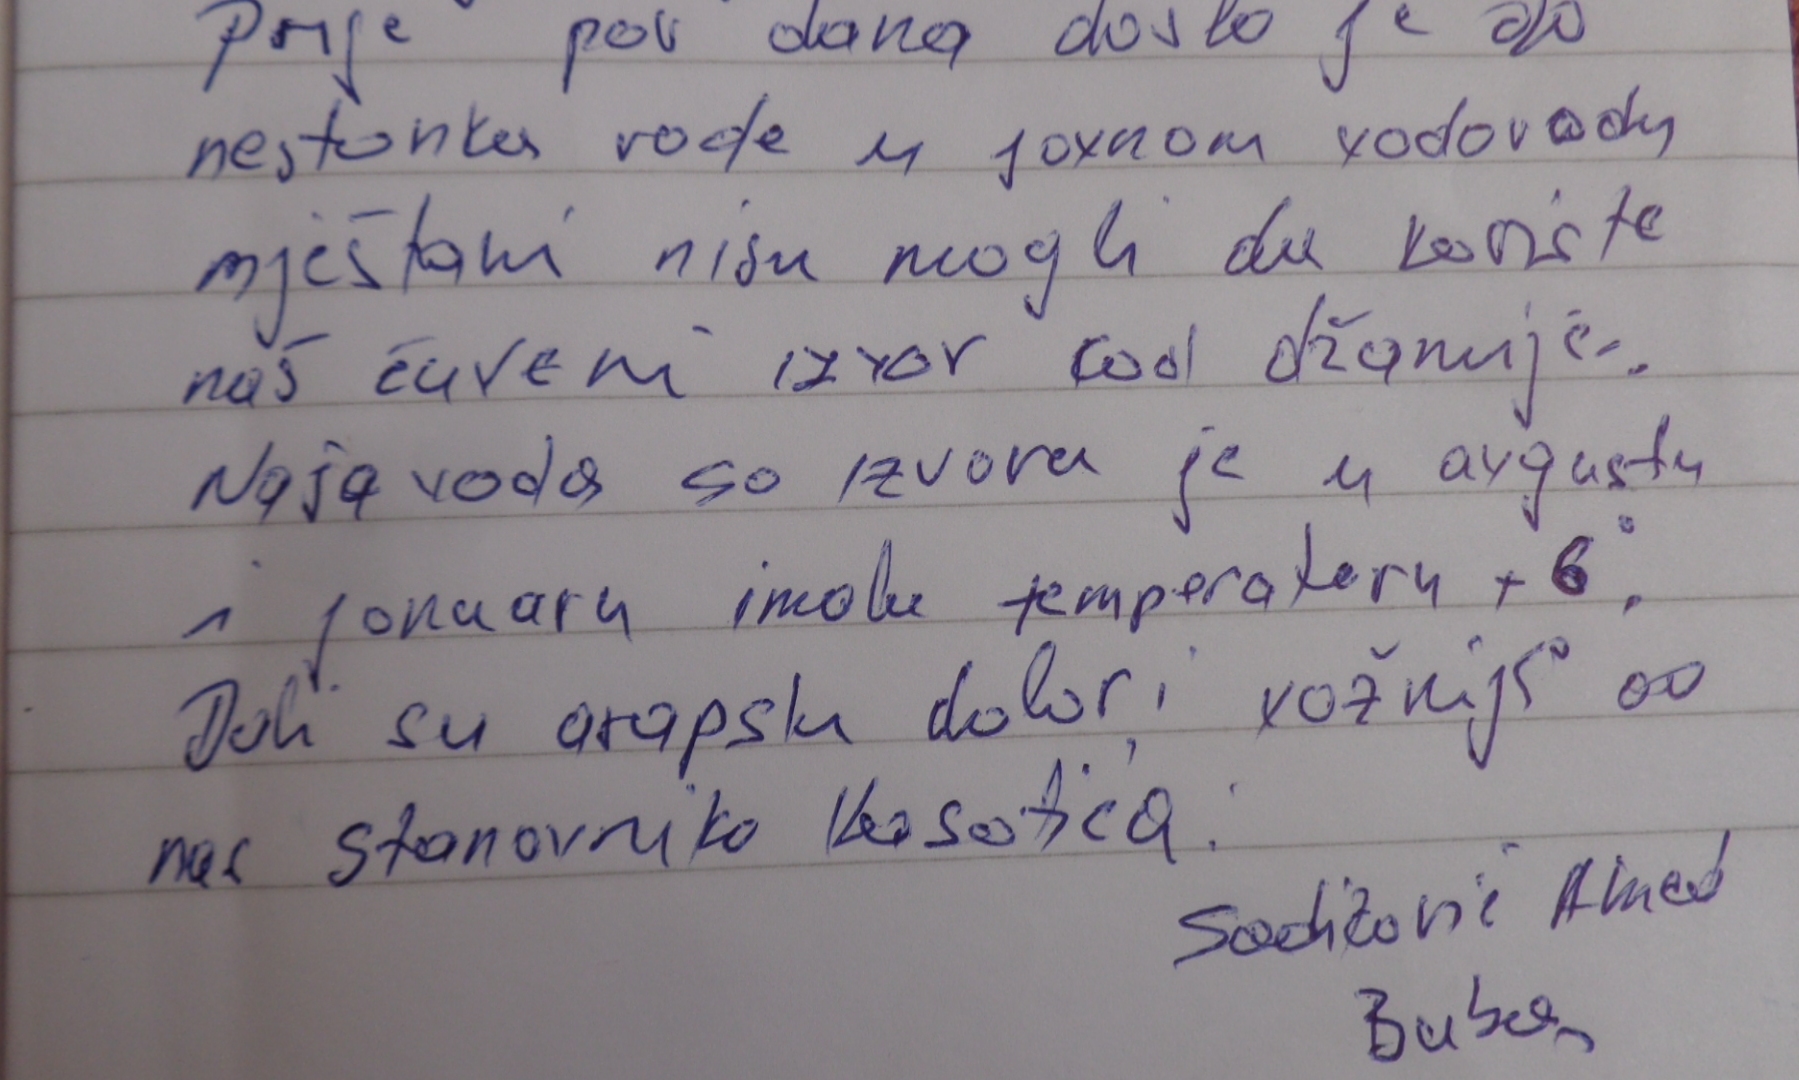 Prije par dana došlo je do
nestanka vode u javnom vodovodu
mještani nisu mogli da koriste
naš čuveni izvor kod džamije.
Naša voda sa izvora je u avgustu
i januaru imala temperaturu +6°.
Dali su arapski dolari važniji od
nas stanovnika Kasatića.
Sadiković Ahmed
Buban